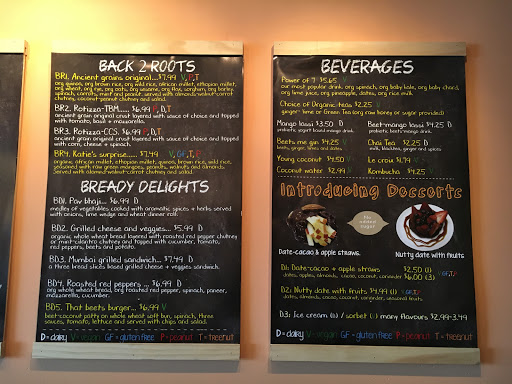 BACK 2 ROOTS
BR1. Ancient grains original....$7.99 V,P,T
org quinoa, org brown rice, org wild rice, african millet, ethiopian millet,
org wheat, org rye, org oats, org sesame, org flax, sorghum, org barley,
spinach, carrots, mint and peanut. served with almond-walnut-carrot
chutney, coconut-peanut chutney and salad.
BR2. Rotizza-TBM..... $6.99 P,D,T
ancient grain original crust layered with sauce of choice and topped
with tomato, basil + mozzarella.
BR3. Rotizza-CCS. $6.99 P,D,T
ancient grain original crust layered with sauce of choice and topped
with corn, cheese + spinach.
BR4. Katie's surprise...... $7.49 V,GF,T,P
organic african millet, ethiopian millet, quinoa, brown rice, wild rice,
seasoned with raw green mangoes, peanuts, walnuts and almonds.
served with almond-walnut-carrot chutney and salad.
BREADY DELIGHTS
BD1. Pav bhaji... $6.99 D
medley of vegetables cooked with aromatic spices + herbs served
with onions, lime wedge and wheat dinner roll.
BD2. Grilled cheese and veggies... $5.99 D
organic whole wheat bread layered with roasted red pepper chutney
or mint-cilantro chutney and topped with cucumber, tomato,
red peppers, beets and potato.
BD3. Mumbai grilled sandwich.... $7.49 D
a three bread slices based grilled cheese + veggies sandwich.
BD4. Roasted red peppers ... $6.99 D
org whole wheat bread, org roasted red pepper, spinach, paneer,
mozzarella, cucumber.
BD5. That beets burger... $6.99 V
beet-coconut patty on whole wheat soft bun, spinach, three
sauces, tomato, lettuce and served with chips and salad.
D=dairy V=vegan GF=gluten free P=peanut T=treenut
BEVERAGES
Power of 7 $5.65 V
our most popular drink. org spinach, org baby kale, org baby chard,
org lime juice, org pineapple, dates, org rice milk.
Choice of Organic teas $2.25
ginger-lime or Green Tea (org raw honey or sugar provided)
Mango lassi $3.50 D
probiotic yogurt based mango drink.
Beet-mango lassi $4.25 D
probiotic beet-mango drink.
Beets me gan $4.25 V
beets, ginger, limes and dates.
Chai Tea $2.25 D
milk, black tea, ginger and spices
Young coconut $4.50 V
Le croix $1.79 V
Coconut water $2.99 V
Kombucha $4.25 V
Introducing Desserts
No
added
sugar
Date-cacao & apple straws.
Nutty date with fruits
D1: Date-cacao + apple straws $2.50 (1) V,GF,T,P
dates, almonds, apple, cacao, coconut, coriander $6.00 (3)
D2: Nutty date with fruits $4.99 (1) V,GF,T,P
dates, almonds, cacao, coconut, coriander, seasonal fruits.
D3: Ice cream (D) / sorbet (V) many flavours $2.99-3.49
D=dairy V=vegan GF=gluten free P=peanut T=treenut